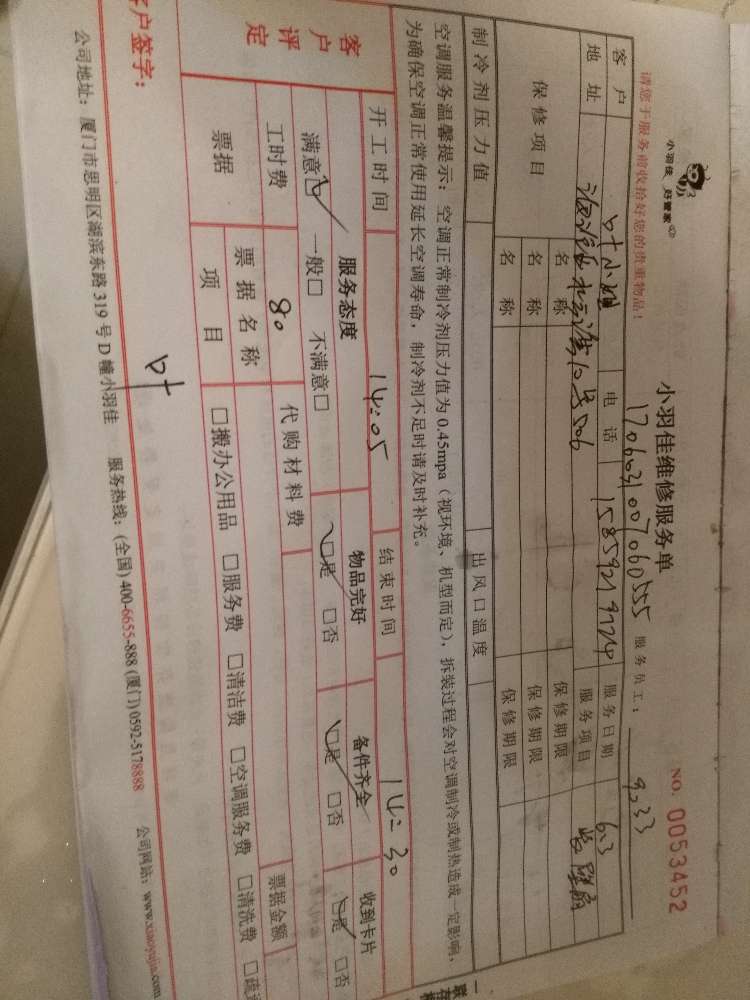 小羽佳 好管家
小羽佳维修服务单
NO. 0053452
请您于服务前收拾好您的贵重物品！
服务员工：
客户 叶小姐 电话 服务日期 6.3
地址 服务项目
保修项目 名称 保修期限
名称 保修期限
名称 保修期限
制冷剂压力值 出风口温度
空调服务温馨提示：空调正常制冷剂压力值为0.45mpa（视环境、机型而定），拆装过程会对空调制冷或制热造成一定影响，
为确保空调正常使用延长空调寿命，制冷剂不足时请及时补充。
开工时间 14:05 结束时间 14:30
客户评定 服务态度 物品完好 备件齐全 收到卡片
满意☑ 一般□ 不满意□ ☑是 □否 ☑是 □否 ☑是 □否
工时费 80 代购材料费
票据 票据名称 票据金额
项目 □搬办公用品 □服务费 □清洁费 □空调服务费 □清洗费
客户签字： 叶
公司地址：厦门市思明区湖滨东路319号D幢小羽佳 服务热线：(全国) 400-6655-888 (厦门) 0592-5178888 公司网站：www.xiaoyujia.com